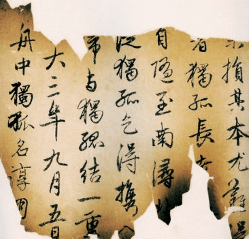 損其本尤難
者獨孤長
自隨至南潯
從獨孤乞得攜入
帰与獨孤結一重
大三年九月五日
舟中獨孤名淳朋